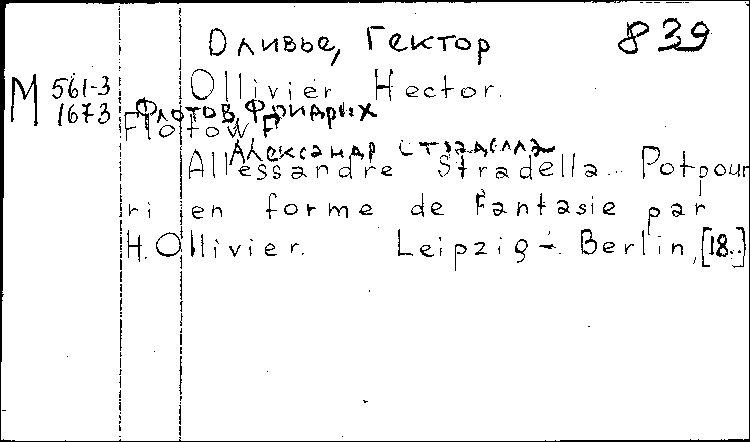 Оливье, Гектор 839
М 561-3 Ollivier Hector.
1673 Флотов, Фридрих
Flotow F
Александр Страделла
Allessandre Stradella. Potpour
ri en forme de Fantasie par
H. Ollivier. Leipzig-. Berlin, [18..]